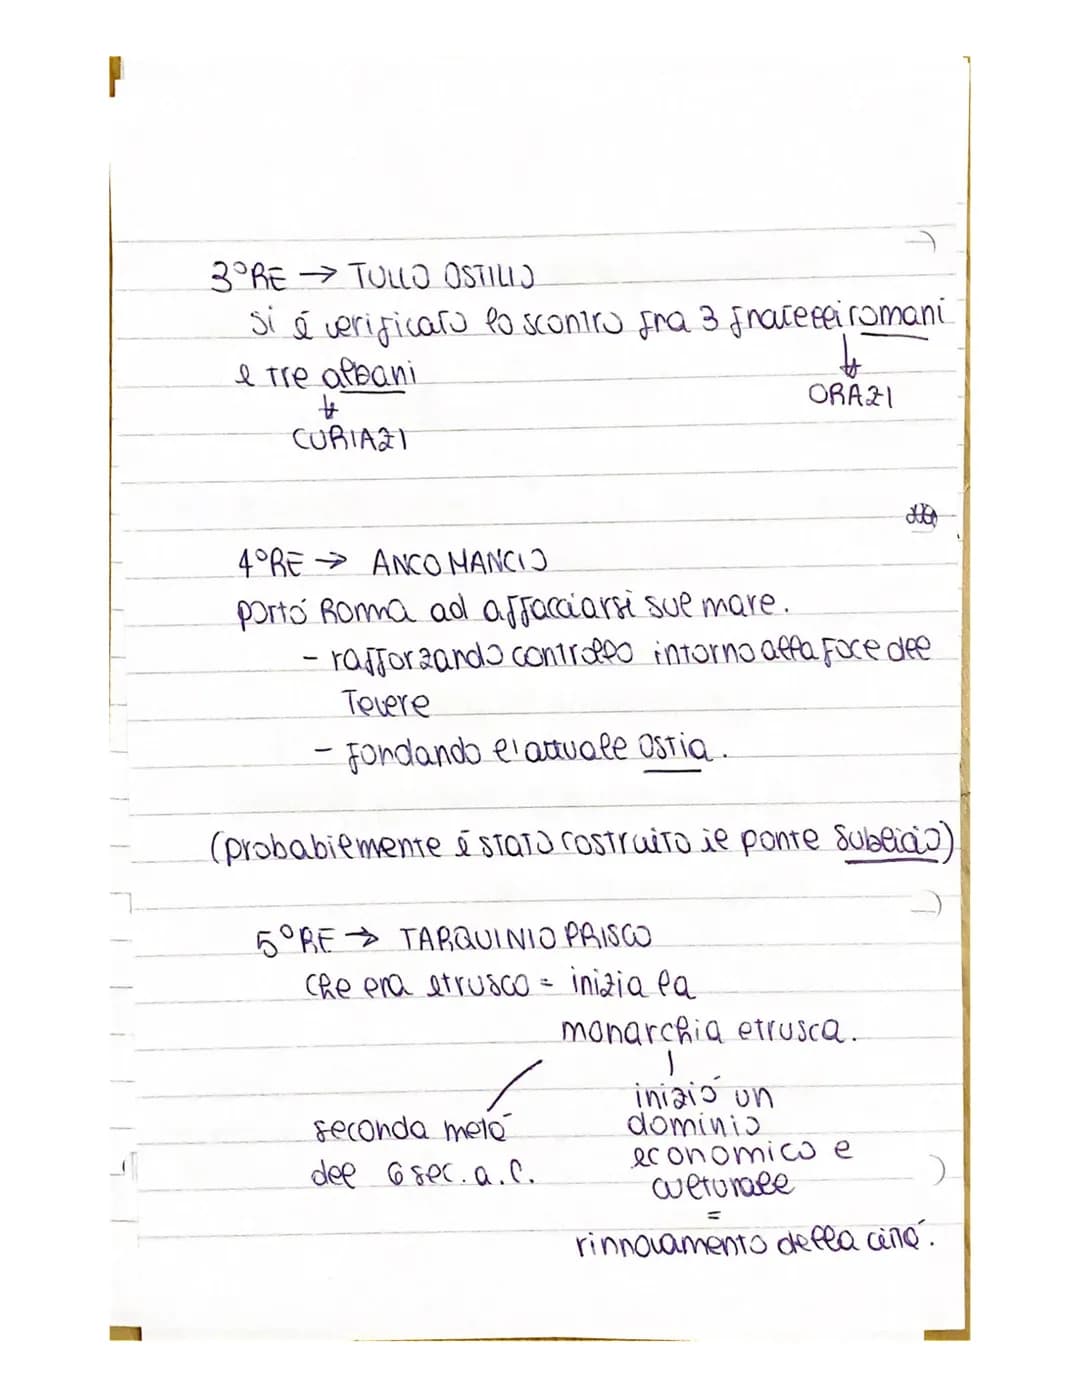 3°RE → TULLO OSTILIO
si é verificato lo scontro fra 3 fratelli romani
e tre albani
ORAZI
CURIAZI
4°RE → ANCO MANCIO
portó Romma ad affacciarsi sul mare.
- rafforzando controllo intorno alla foce del
Tevere
- fondando l'attuale Ostia.
(probabilmente é stato costruito il ponte Sublicio)
5°RE → TARQUINIO PRISCO
che era etrusco = inizia la
monarchia etrusca.
inizió un
seconda metá
dominio
del 6 sec. a.C.
economico e
culturale
=
rinnovamento della cittá.